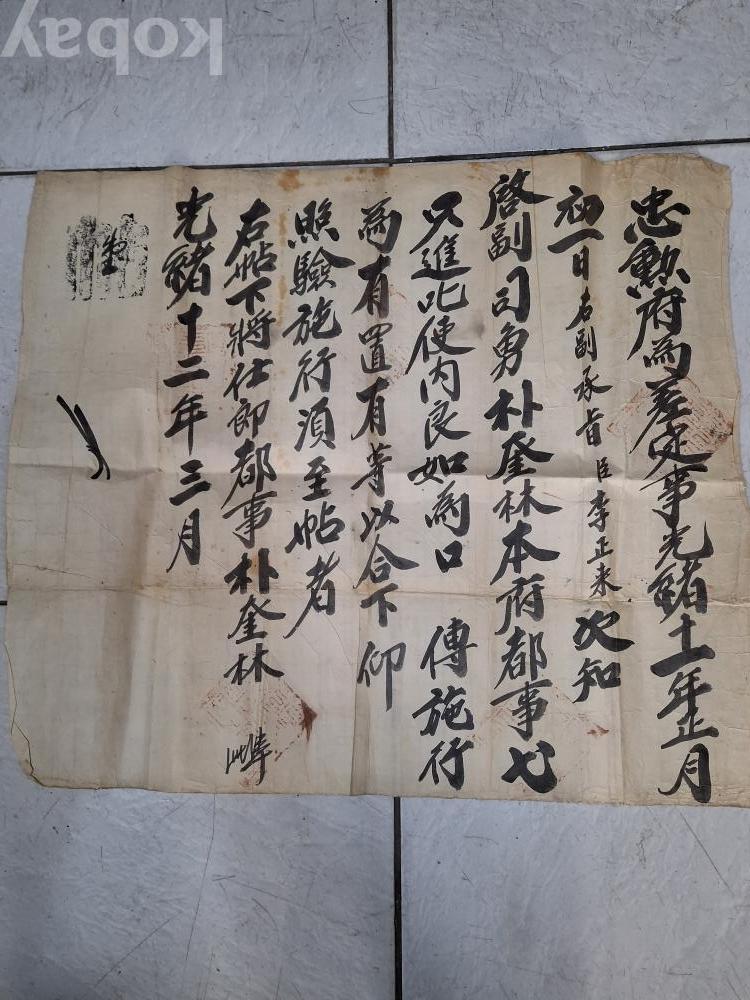 kobay
忠勳府為差定事光緒十一年正月
初一日右副承旨臣李正来次知
啓副司勇朴奎林本府都事
只進叱使內良如為口 傳施行
為有置有等以合下仰
照驗施行須至帖者
右帖下將仕郎都事朴奎林
光緒十二年三月